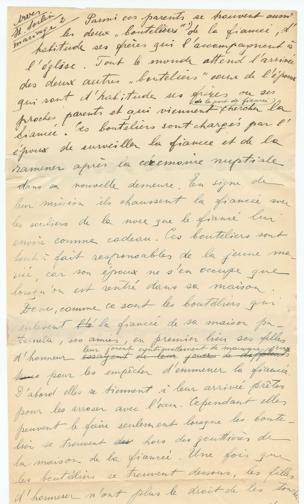 Parmi ces parents se trouvent aussi
les deux "bouteliers" de la fiancée, d'
habitude ses frères qui l'accompagnent à
l'église. Tout le monde attend l'arrivée
des deux autres "bouteliers" de l'époux
qui sont d'habitude ses frères ou ses
proches parents et qui viennent chercher la
fiancée. Ces bouteliers sont chargés par l'
époux de surveiller la fiancée et de la
ramener après la cérémonie nuptiale
dans sa nouvelle demeure. En signe de
leur mission ils chaussent la fiancée avec
les souliers de la noce que le fiancé lui
envoie comme cadeau. Ces bouteliers sont
tout à fait responsables de la jeune ma-
riée car son époux ne s'en occupe que
lorsqu'on est rentré dans sa maison.
Donc, comme ce sont les bouteliers qui
enlèvent la fiancée de sa maison pa-
ternelle, ses amies, en premier lieu ses filles
d'honneur
pour les empêcher d'emmener la fiancée.
D'abord elles se tiennent à leur arrivée prêtes
pour les arroser avec l'eau. Cependant elles
peuvent le faire seulement lorsque les boute-
liers se trouvent hors des gouttières de
la maison de la fiancée. Une fois que
les bouteliers se trouvent dessous, les filles
d'honneur n'ont plus le droit de les